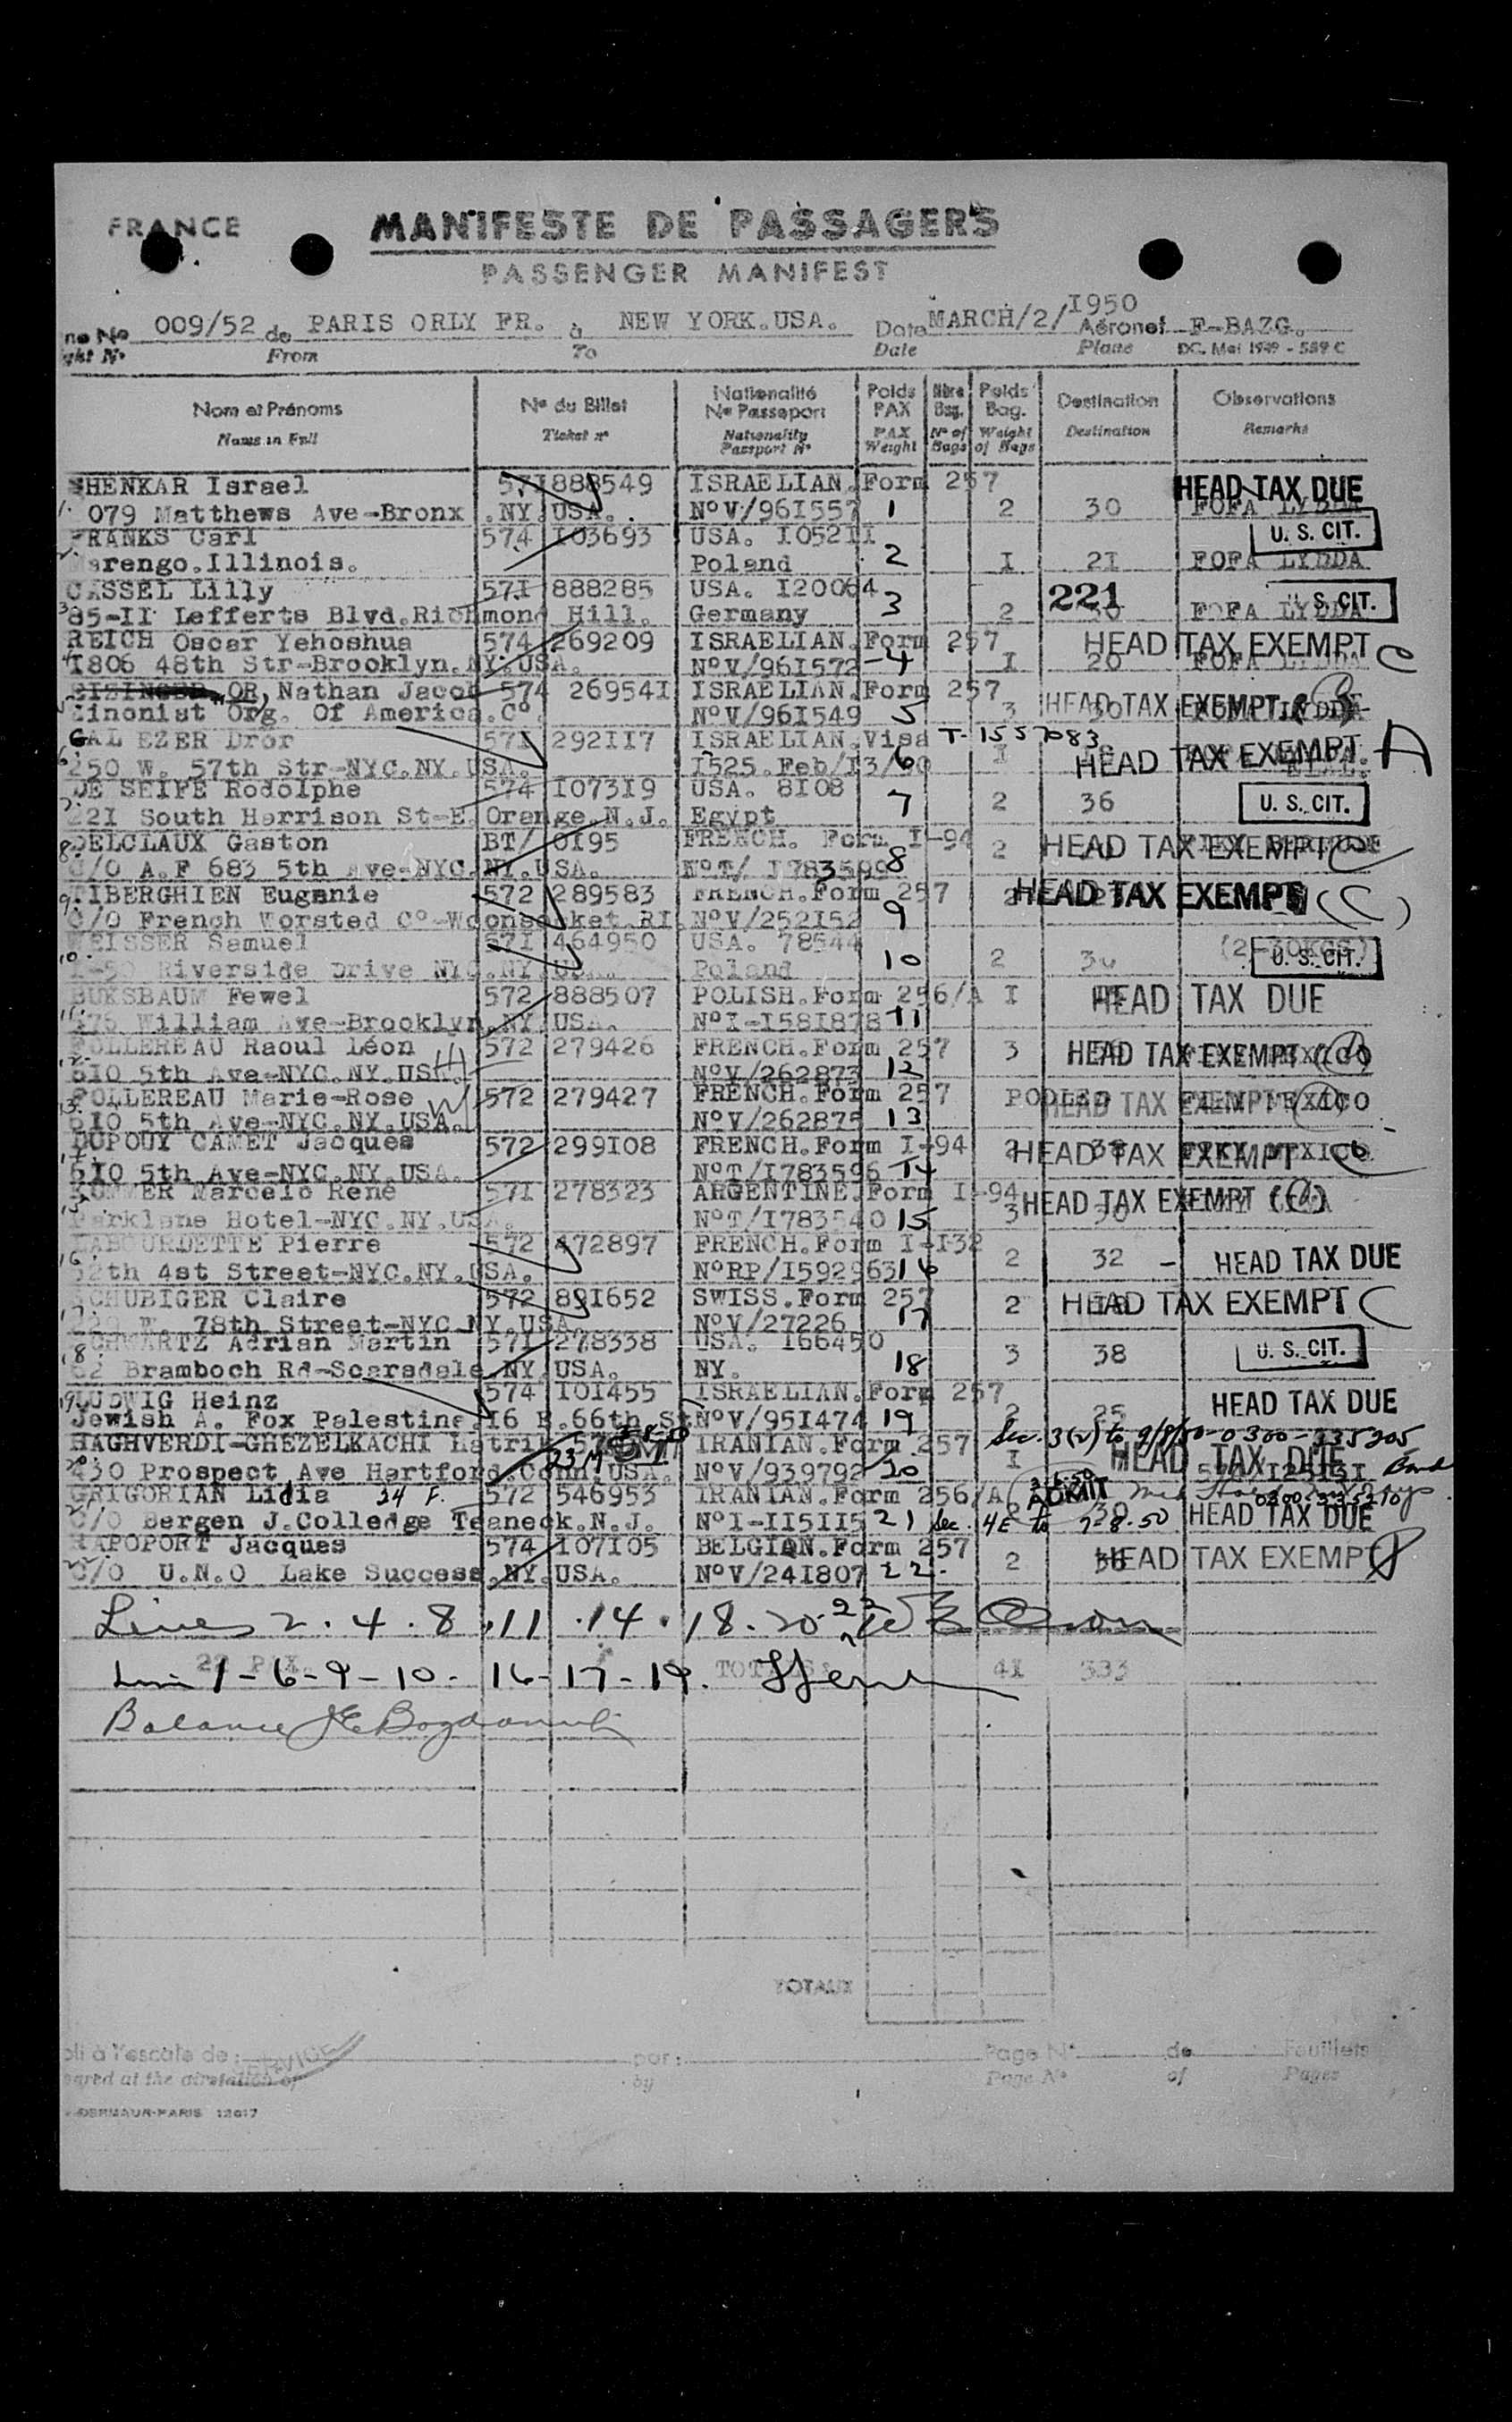 FRANCE
MANIFESTE DE PASSAGERS
PASSENGER MANIFEST
ne No 009/52 de PARIS ORLY FR. à NEW YORK.USA. Date MARCH/2/1950 Aéronef F-BAZG.
ght No From To Date Plane DC. Mai 1949 - 589 C
Nom et Prénoms No du Billet Nationalité No Passeport Poids PAX Nbre Bag. Poids Bag. Destination Observations
Name in Full Ticket no Nationality Passport No PAX Weight No of Bags Weight of Bags Destination Remarks
SHENKAR Israel 571 888549 ISRAELIAN.Form 257 HEAD TAX DUE
1. 079 Matthews Ave-Bronx .NY.USA. NoV/961557 1 2 30 FOFA LYDDA
FRANKS Carl 574 103693 USA. 105211 U. S. CIT.
arengo.Illinois. Poland 2 I 21 FOFA LYDDA
CASSEL Lilly 571 888285 USA. 120064 221 U. S. CIT.
3 85-II Lefferts Blvd.Richmond Hill. Germany 3 2 30 FOFA LYDDA
REICH Oscar Yehoshua 574 269209 ISRAELIAN.Form 257 HEAD TAX EXEMPT C
4 1806 48th Str-Brooklyn.NY.USA. NoV/961572 -4 I 20 FOFA LYDDA
OR, Nathan Jacob 574 269541 ISRAELIAN.Form 257 HEAD TAX EXEMPT
5 Zinonist Org. Of America.Co. NoV/961549 5 3 30
GAL EZER Dror 571 292117 ISRAELIAN.Visa T-1557083 HEAD TAX EXEMPT A
6 250 W. 57th Str-NYC.NY.USA. 1525.Feb/13/60 6 I
DE SEIFE Rodolphe 574 107319 USA. 8108 2 36 U. S. CIT.
7. 221 South Harrison St-E. Orange.N.J. Egypt 7
DELCLAUX Gaston BT/ 0195 FRENCH. Form I-94 2 HEAD TAX EXEMPT C
8. C/O A.F 683 5th Ave-NYC.NY.USA. NoT/ I783599 8
TIBERGHIEN Eugenie 572 289583 FRENCH.Form 257 2 HEAD TAX EXEMPT (C)
9. C/O French Worsted Co-Woonsocket.RI. NoV/252152 9
WEISSER Samuel 571 464950 USA. 78544 2 30 (2-30KGS)
10. Riverside Drive NYC.NY.US Poland 10 U. S. CIT.
BUKSBAUM Fewel 572 888507 POLISH.Form 256/A I HEAD TAX DUE
11. 475 William Ave-Brooklyn.NY.USA. NoI-I581878 11
FOLLEREAU Raoul Léon 572 279426 FRENCH.Form 257 3 HEAD TAX EXEMPT
12. 610 5th Ave-NYC.NY.USA. (H) NoV/262873 12
FOLLEREAU Marie-Rose W 572 279427 FRENCH.Form 257 POOLED HEAD TAX EXEMPT
13. 610 5th Ave-NYC.NY.USA. NoV/262875 13
DUPOUY CAMET Jacques 572 299108 FRENCH.Form I-94 2 38 HEAD TAX EXEMPT C
14. 610 5th Ave-NYC.NY.USA. NoT/I783596 14
Marcelo René 571 278323 ARGENTINE.Form I-94 HEAD TAX EXEMPT
15. Parklane Hotel-NYC.NY.USA. NoT/I783540 15 3 30
LABOURDETTE Pierre 572 472897 FRENCH.Form I-I32 2 32 - HEAD TAX DUE
16. 52th 4st Street-NYC.NY.USA. NoRP/I592963 16
SCHUBIGER Claire 572 891652 SWISS.Form 257 2 HEAD TAX EXEMPT C
17. 78th Street-NYC.NY.USA NoV/27226 17
SCHWARTZ Adrian Martin 571 278338 USA. 166450 3 38 U. S. CIT.
18. 62 Bramboch Rd-Scarsdale.NY.USA. NY. 18
LUDWIG Heinz 574 101455 ISRAELIAN.Form 257 2 25 HEAD TAX DUE
19. Jewish A. Fox Palestine.16 E.66th St. NoV/951474 19
HAGHVERDI-GHEZELKACHI IRANIAN.Form 257 Sec. 3(2) to 9/8/50-0300-335205
20. 430 Prospect Ave Hartford.Conn.USA. 23 M NoV/939792 20 I HEAD TAX DUE Bond
GRIGORIAN Lidia 24 F. 572 546953 IRANIAN.Form 256/A ADMIT 0300-335210
21. C/O Bergen J.Colledge Teaneck.N.J. NoI-II5II5 21 Sec. 4E to 7-8-50 HEAD TAX DUE
RAPOPORT Jacques 574 107105 BELGIAN.Form 257 2 HEAD TAX EXEMPT
22. C/O U.N.O Lake Success.NY.USA. NoV/241807 22.
Lines 2.4.8.11.14.18.20.22
22 PAX. TOTALS: 41 333
Lines 1-6-9-10-16-17-19.
Balance
TOTAUX
bli à l'escale de: par: Page No de Feuillets
pared at the airstation of by Page No of Pages
SERVICE
DERMAUR-PARIS 12617